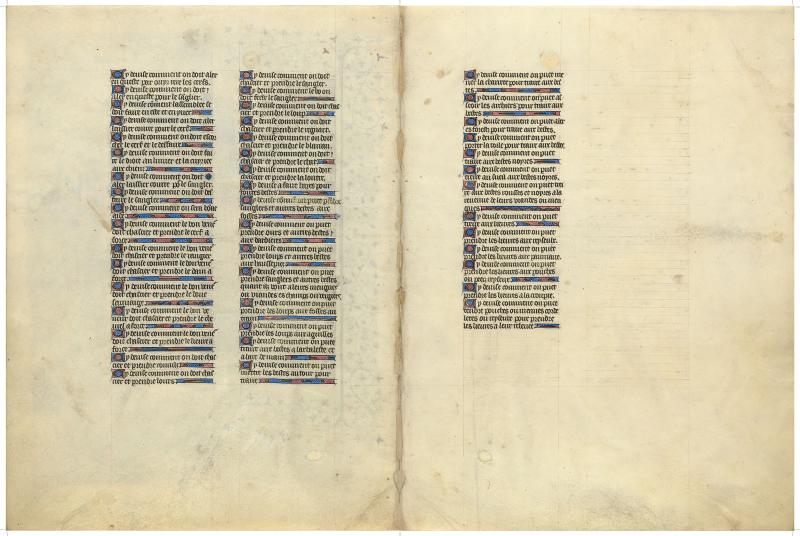 Cy deuise comment on doit aler
en queste par ouyr les cerfs.
Cy deuise comment on doit
aler en queste pour le sanglier.
Cy deuise comment lassemblee se
doit faire en este et en yuer
Cy deuise comment on doit aler
laissier courre pour le cerf
Cy deuise comment on doit
le cerf et le deffaire
Cy deuise comment on doit fai
re le droit au limier et la cuyriee
aux chiens
Cy deuise comment on doit
aler laissier courre po le sangler.
Cy deuise comment on doit def
faire le sangler
Cy deuise comment on
aux autres bestes
Cy deuise comment le bon vene
doit chassier et prendre le cerf a
force
Cy deuise comment le bon vene
doit chassier et prendre le rangier
Cy deuise comment le bon vene
doit chassier et prendre le dain a
force
Cy deuise comment le bon vene
doit chassier et prendre le bouc
Cy deuise comment le bon ve
neur doit chassier et prendre le che
urel a force
Cy deuise comment le bon vene
doit chassier et prendre le lieure a
force
Cy deuise comment on doit chas
cier et prendre connilz
Cy deuise comment on doit chas
cier et prendre lours
Cy deuise comment on doit
chassier et prendre le sanglier.
Cy deuise comment le bon
doit le sangler
Cy deuise comment on doit chas
cier et prendre le loup
Cy deuise comment on doit
chassier et prendre le regnart.
Cy deuise comment on doit
chassier et prendre le blariau.
Cy deuise comment on doit
chassier et prendre le chat
Cy deuise comment on doit
chassier et prendre la loutre.
Cy deuise a faire hayes pour
toutes bestes
Cy deuise comment on puet prendre
sangliers et autres bestes aux
fosses
Cy deuise comment on puet
prendre ours et autres bestes
aux
Cy deuise comment on puet
prendre loups et autres bestes
aux haussepiez
Cy deuise comment on puet
prendre sangliers et autres bestes
quant ilz vont a leurs mengues
ou viandes es champs ou vignes
Cy deuise comment on puet
prendre les loups aux fosses au
train
Cy deuise comment on puet
prendre les loups aux aguilles
Cy deuise comment on puet
traire aux bestes a larbaleste et
a larc de main
Cy deuise comment on puet
mettre les bestes autour pour
traire
Cy deuise comment on puet me
ner la charete pour traire aux bes
tes
Cy deuise comment on puet
les archiers pour traire aux
bestes
Cy deuise comment on puet aler
es forestz pour traire aux bestes.
Cy deuise comment on puet
porter la toile pour traire aux bestes
Cy deuise comment on puet
traire aux bestes noyres
Cy deuise comment on puet
traire au sueil aux bestes noyres.
Cy deuise comment on puet trai
re aux bestes rousses et noyres a la
reuenue de leurs viandes ou men
gues
Cy deuise comment on puet
traire aux lieures
Cy deuise comment on puet
prendre les lieures aux
Cy deuise comment on puet
prendre les lieures aux panniaux.
Cy deuise comment on puet
prendre les lieures aux pouches
ou
Cy deuise comment on puet
prendre les lieures a la croupie.
Cy deuise comment on puet
tendre pouches ou menues corde
letes ou pour prendre
les lieures a leur releuee